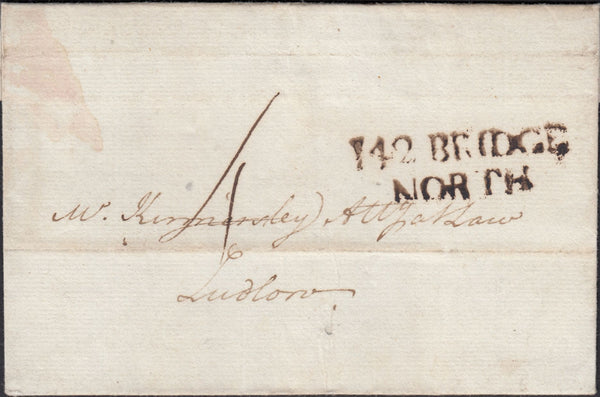 142 BRIDGE
NORTH
4
Mr. Kinnersley Atty at Law
Ludlow